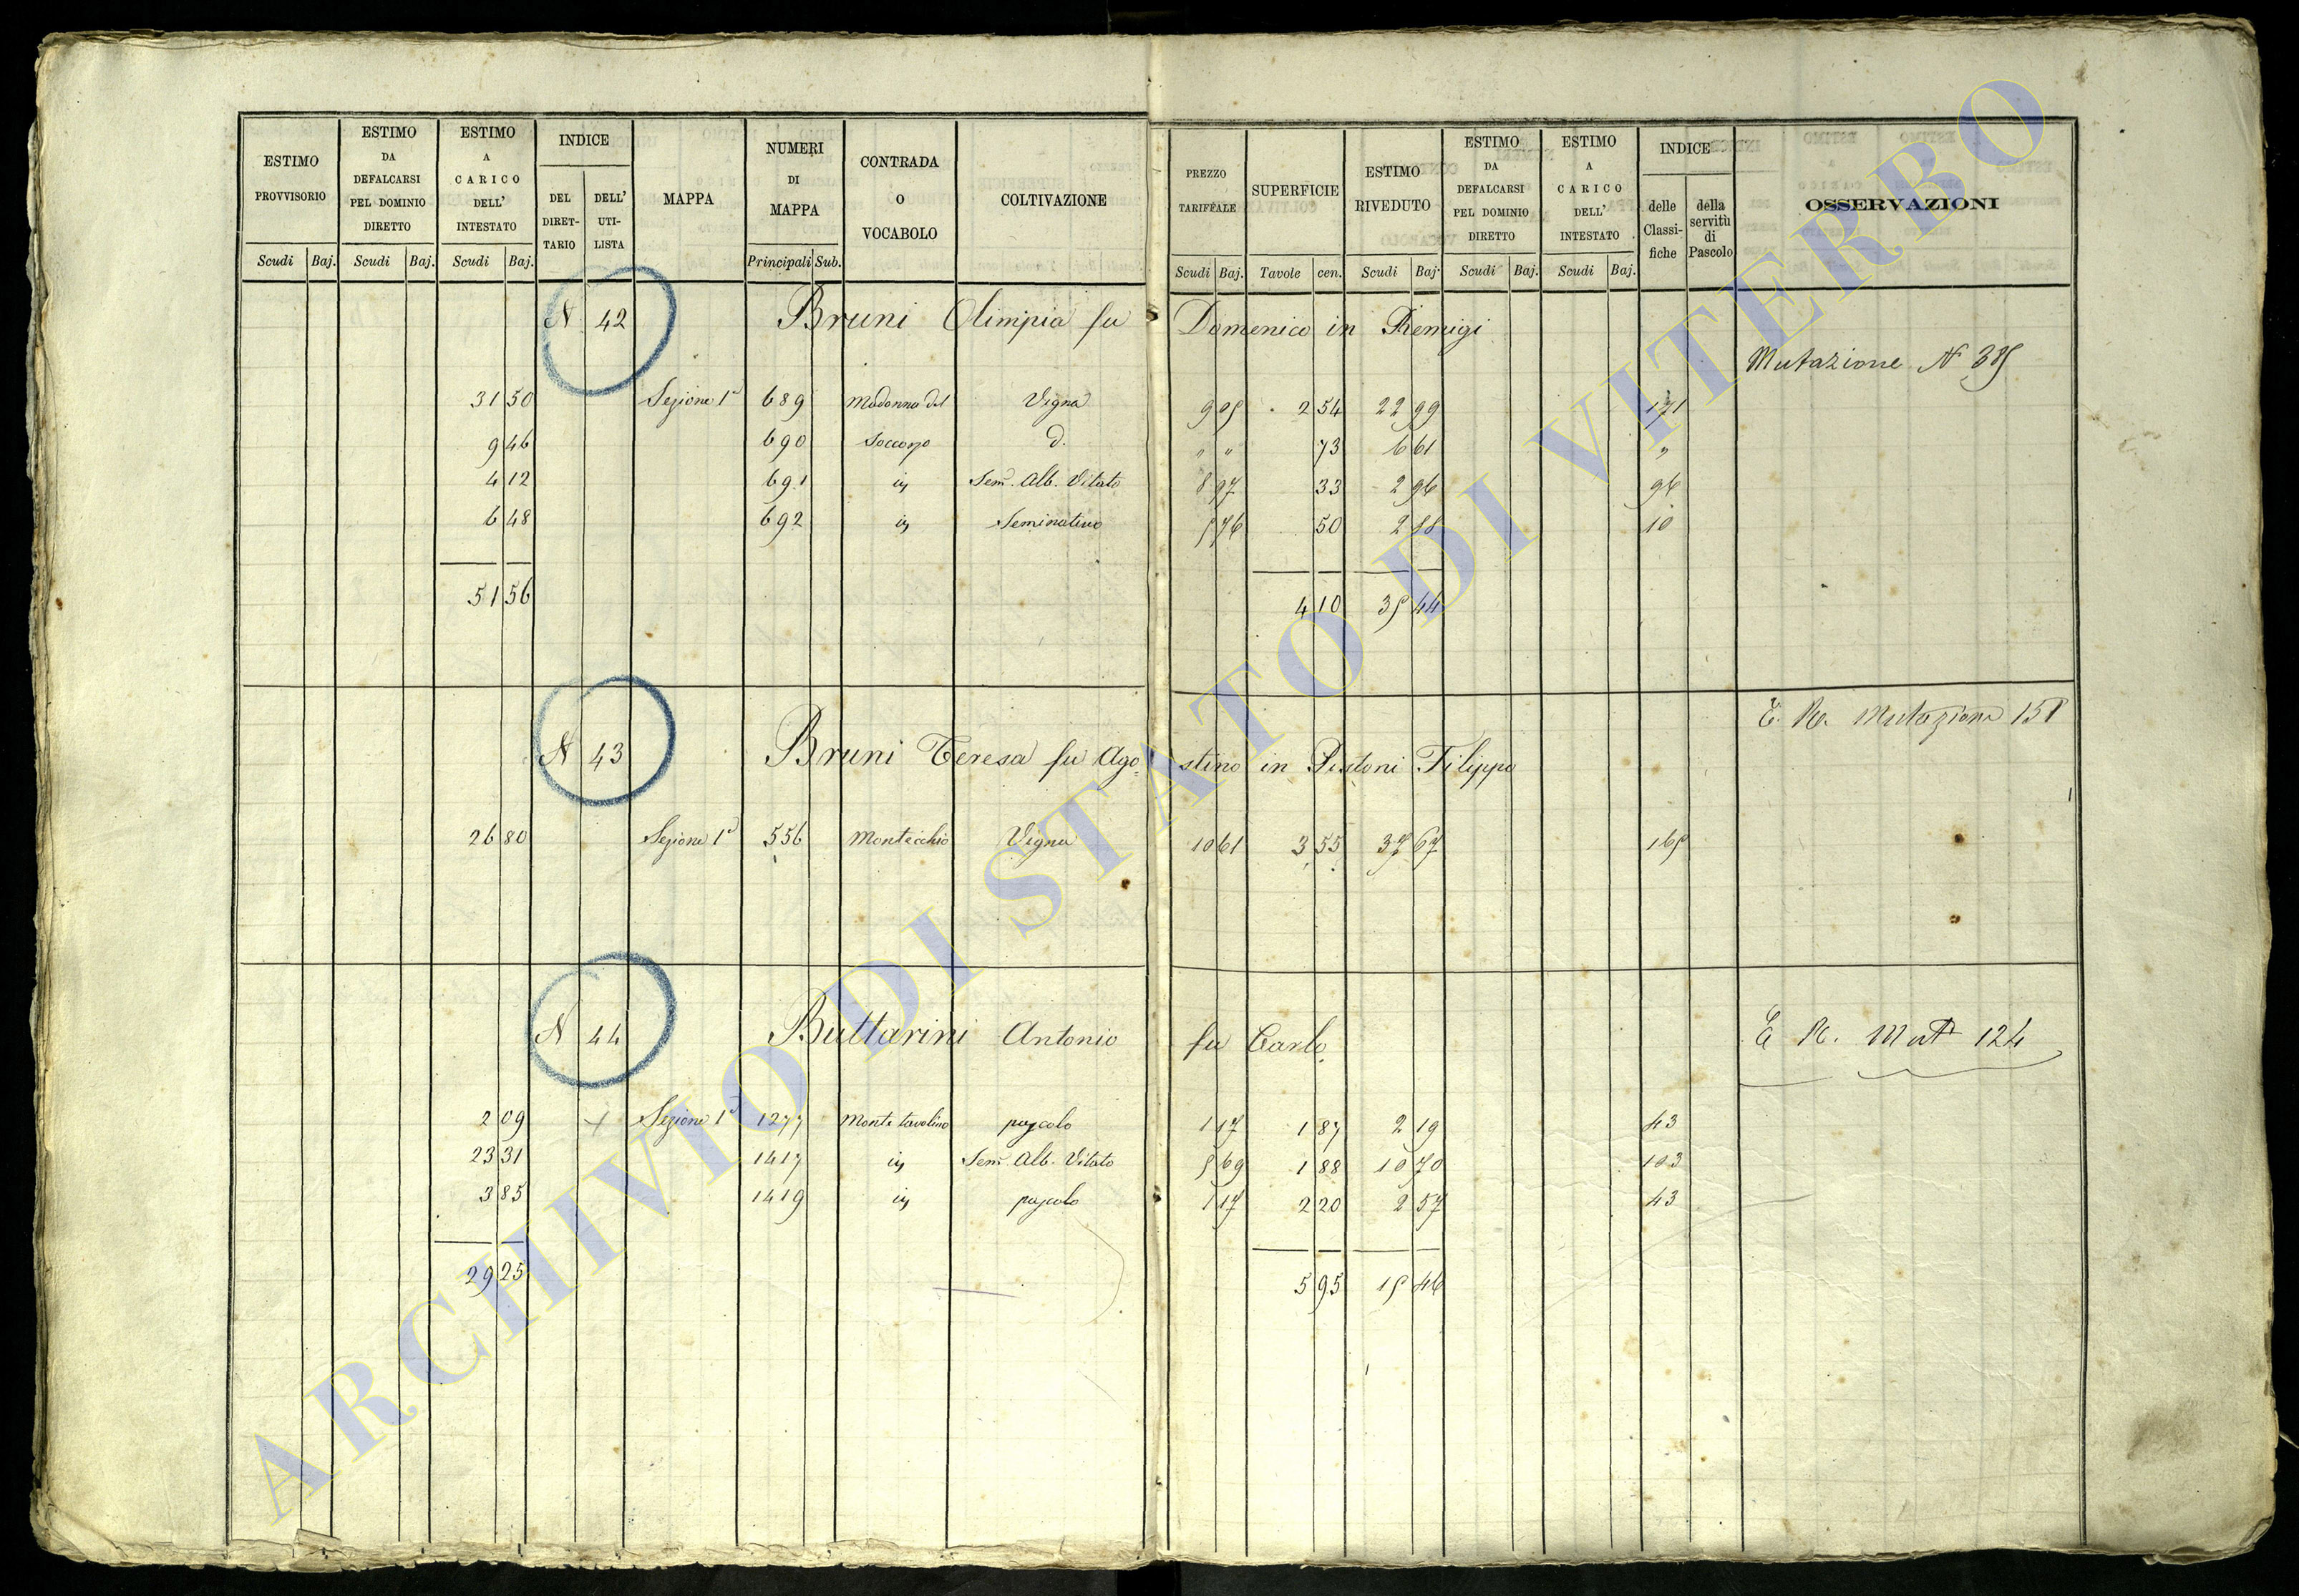 ESTIMO PROVVISORIO
ESTIMO DA DEFALCARSI PEL DOMINIO DIRETTO
ESTIMO A CARICO DELL' INTESTATO
INDICE
DEL DIRETTARIO
DELL' UTILISTA
MAPPA
NUMERI DI MAPPA
CONTRADA O VOCABOLO
COLTIVAZIONE
PREZZO TARIFFALE
SUPERFICIE
ESTIMO RIVEDUTO
ESTIMO DA DEFALCARSI PEL DOMINIO DIRETTO
ESTIMO A CARICO DELL' INTESTATO
INDICE
delle Classifiche
della servitù di Pascolo
OSSERVAZIONI
Scudi Baj. Scudi Baj. Scudi Baj. Principali Sub. Scudi Baj. Tavole cen. Scudi Baj. Scudi Baj. Scudi Baj.
N 42 Bruni Olimpia fu Domenico in Remigi
Mutazione N 385
31 50 Sezione 1ª 689 Madonna del Vigna 9 05 2 54 22 99 171
9 46 690 Soccorso d. " " 73 6 61 "
4 12 691 in Sem. Alb. Vitato 8 97 33 2 96 96
6 48 692 in Seminativo 5 76 50 2 88 10
51 56 4 10 35 44
E. R. Mutazione 158
N 43 Bruni Teresa fu Agostino in Pistoni Filippo
26 80 Sezione 1ª 556 Montecchio Vigna 10 61 3 55 37 67 165
N 44 Buttarini Antonio fu Carlo
E R. Mut 124
2 09 Sezione 1ª 1277 Monte tavolino pascolo 1 17 1 87 2 19 43
23 31 1417 in Sem. Alb. Vitato 5 69 1 88 10 70 103
3 85 1419 in pascolo 1 17 2 20 2 57 43
29 25 5 95 15 46
ARCHIVIO DI STATO DI VITERBO